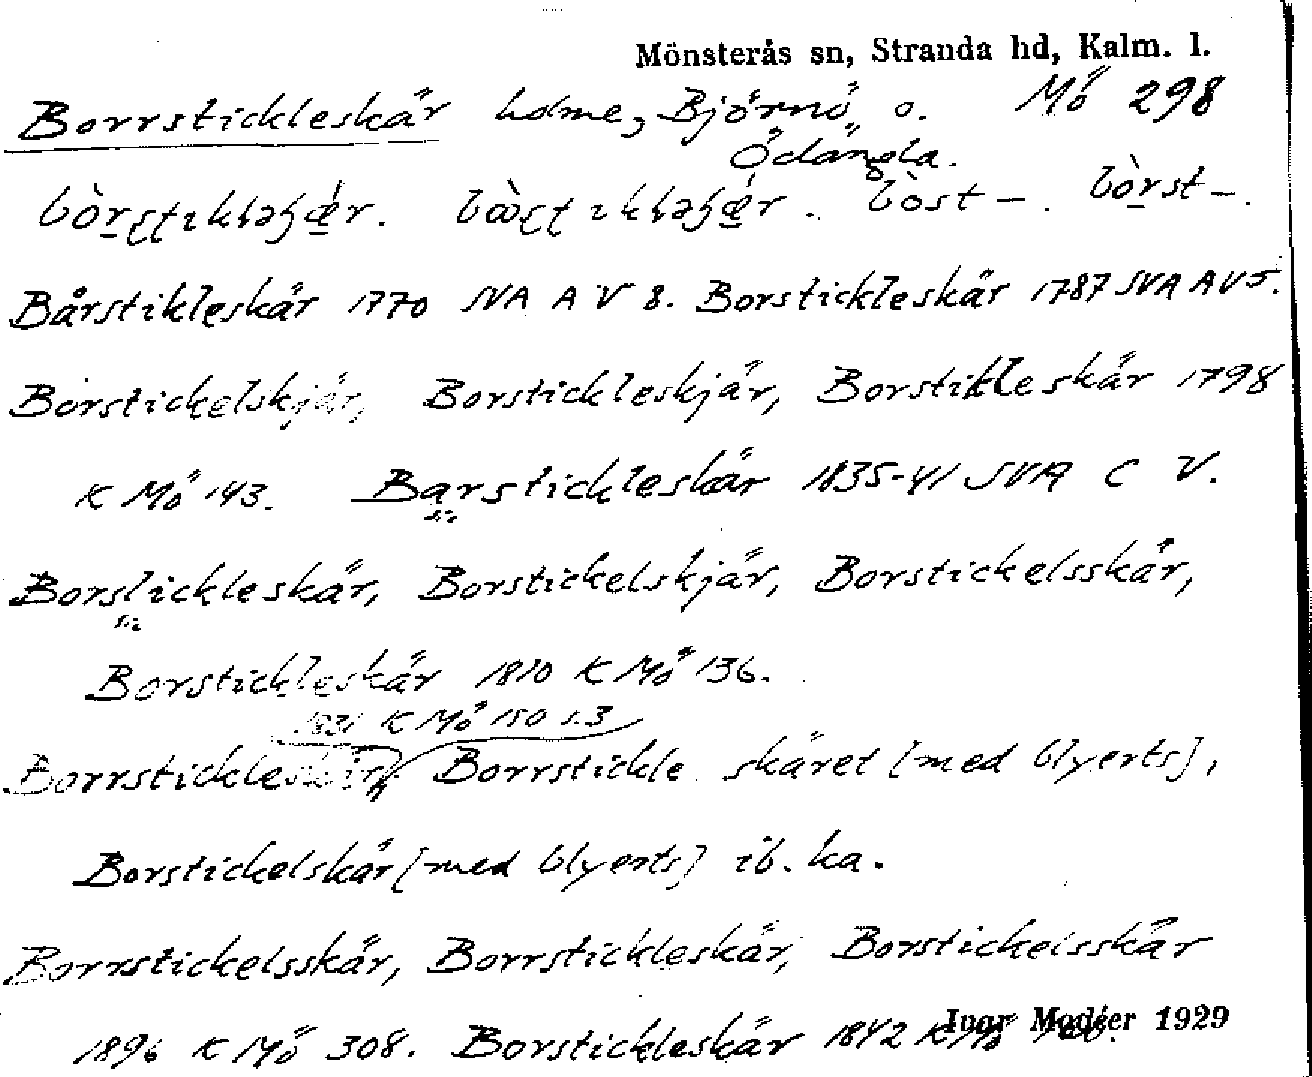 Mönsterås sn, Stranda hd, Kalm. l.
Borrstickleskär holme, Björnö o. Mö 298
Ödängla.
Bårstikleskär 1770 SVA A V 8. Borstickleskär 1787 SVA A V 5.
Borstickelskjär, Borstickleskjär, Borstikleskär 1798
K Mö 143. Barstickleskär 1835-41 SVA C V.
sic
Borslickleskär, Borstickelskjär, Borstickelsskär,
sic
Borstickleskär 1810 K Mö 136.
1831 K Mö 150 s. 3
Borrstickleskär, Borrstickle skäret [med blyerts],
Borstickelskär [med blyerts] ib. ka.
Borrstickelsskär, Borrstickleskär, Borstickelsskär
1896 K Mö 308. Borstickleskär 1842 K Mö
Ivar Modéer 1929